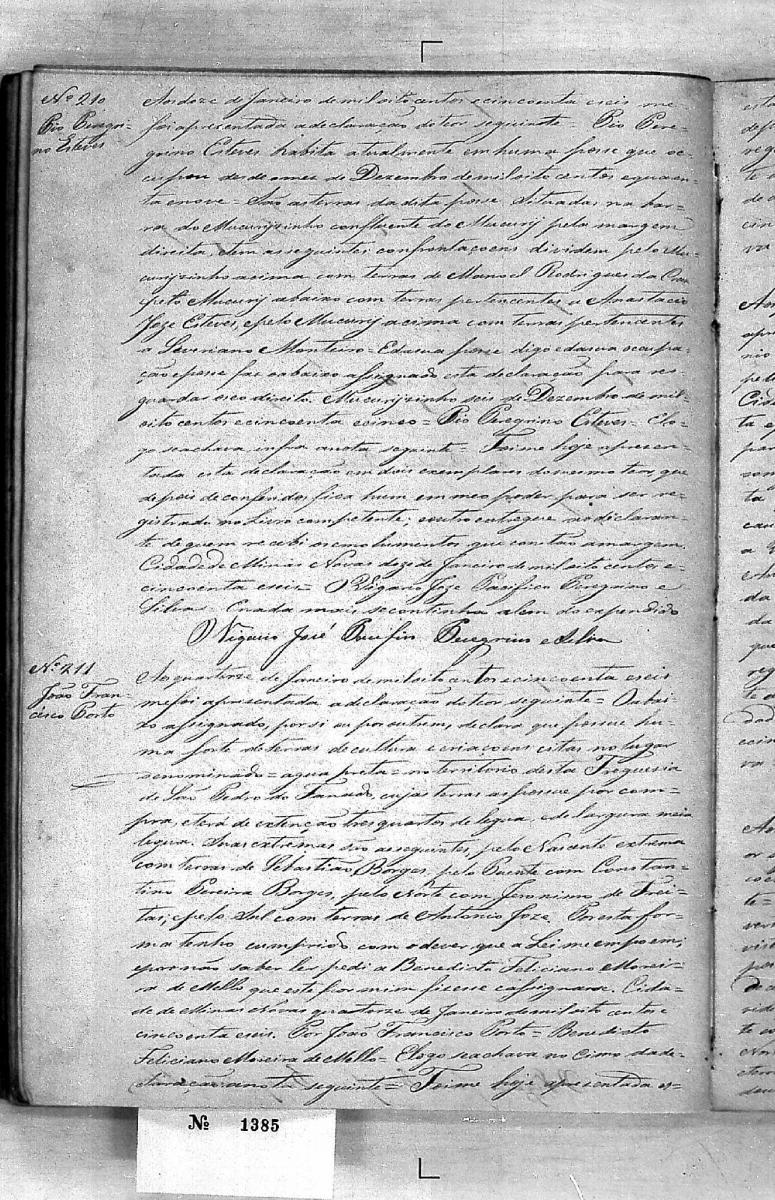 Nº 210
Pio Peregri-
no Esteves
Aos doze de Janeiro de mil oito centos e cincoenta e seis me
foi apresentada a declaração do teor seguinte = Pio Pere-
grino Esteves habita atualmente em huma posse que oc-
cupou desde o mez de Dezembro de mil oito centos e quaren-
ta e nove = São as terras da dita posse situadas na bar-
ra do Mucurysinho confluente do Mucury pela margem
direita, e tem as seguintes confrontaçoens dividem pelo Mu-
curyzinho acima com terras de Manoel Rodrigues da
pelo Mucury abaixo com terras pertencentes a Anastacio
Joze Esteves, e pelo Mucury acima com terras pertencentes
a Severiano Monteiro = E da sua posse digo e da sua ocupa-
ção e posse faz o abaixo assignado esta declaração para res-
guardar o seo direito. Mucuryzinho seis de Dezembro de mil
oito centos e cincoenta e cinco = Pio Peregrino Esteves = E lo-
go se achava infra a nota seguinte = Foi me hoje apresen-
tada esta declaração em dois exemplares do mesmo teor, que
depois de conferidos, fica hum em meo poder para ser re-
gistrado no Livro competente; e outro entregue ao declaran-
te de quem recebi os emolumentos que constão a margem.
Cidade de Minas Novas doze de Janeiro de mil oito centos e
cincoenta e seis = O Vigario Joze Pacifico Peregrino e
Silva = E nada mais se continha alem do expendido
O Vigario José Pacifico Peregrino e Silva
Nº 211
João Fran-
cisco Porto
Ao quatorze de Janeiro de mil oito centos e cincoenta e seis
me foi apresentada a declaração do teor seguinte = O abai-
xo assignado, por si ou por outrem, declara que possue hu-
ma sorte de terras de cultura e criaçoens citas no lugar
denominado = agua preta = no territorio desta Freguesia
de São Pedro do Fanado, cujas terras as possue por com-
pra, e terá de extenção tres quartos de legua, e de largura meia
legua. Suas extremas são as seguintes, pelo Nascente extrema
com terras de Sebastião Borges, pelo Poente com Constan-
tino Pereira Borges, pelo Norte com Jeronimo de Frei-
tas, e pelo Sul com terras de Antonio Joze. Por esta for-
ma tenho cumprido com o dever que a Lei me empoem;
e por não saber ler pedi a Benedicto Feliciano Morei-
ra de Mello que este por mim fizesse e assignasse. Cida-
de de Minas Novas quatorze de Janeiro de mil oito centos e
cincoenta e seis. Por João Francisco Porto = Benedicto
Feliciano Moreira de Mello = E logo se achava no cimo da de-
claração a nota seguinte = Foi me hoje apresentada es-
Nº 1385